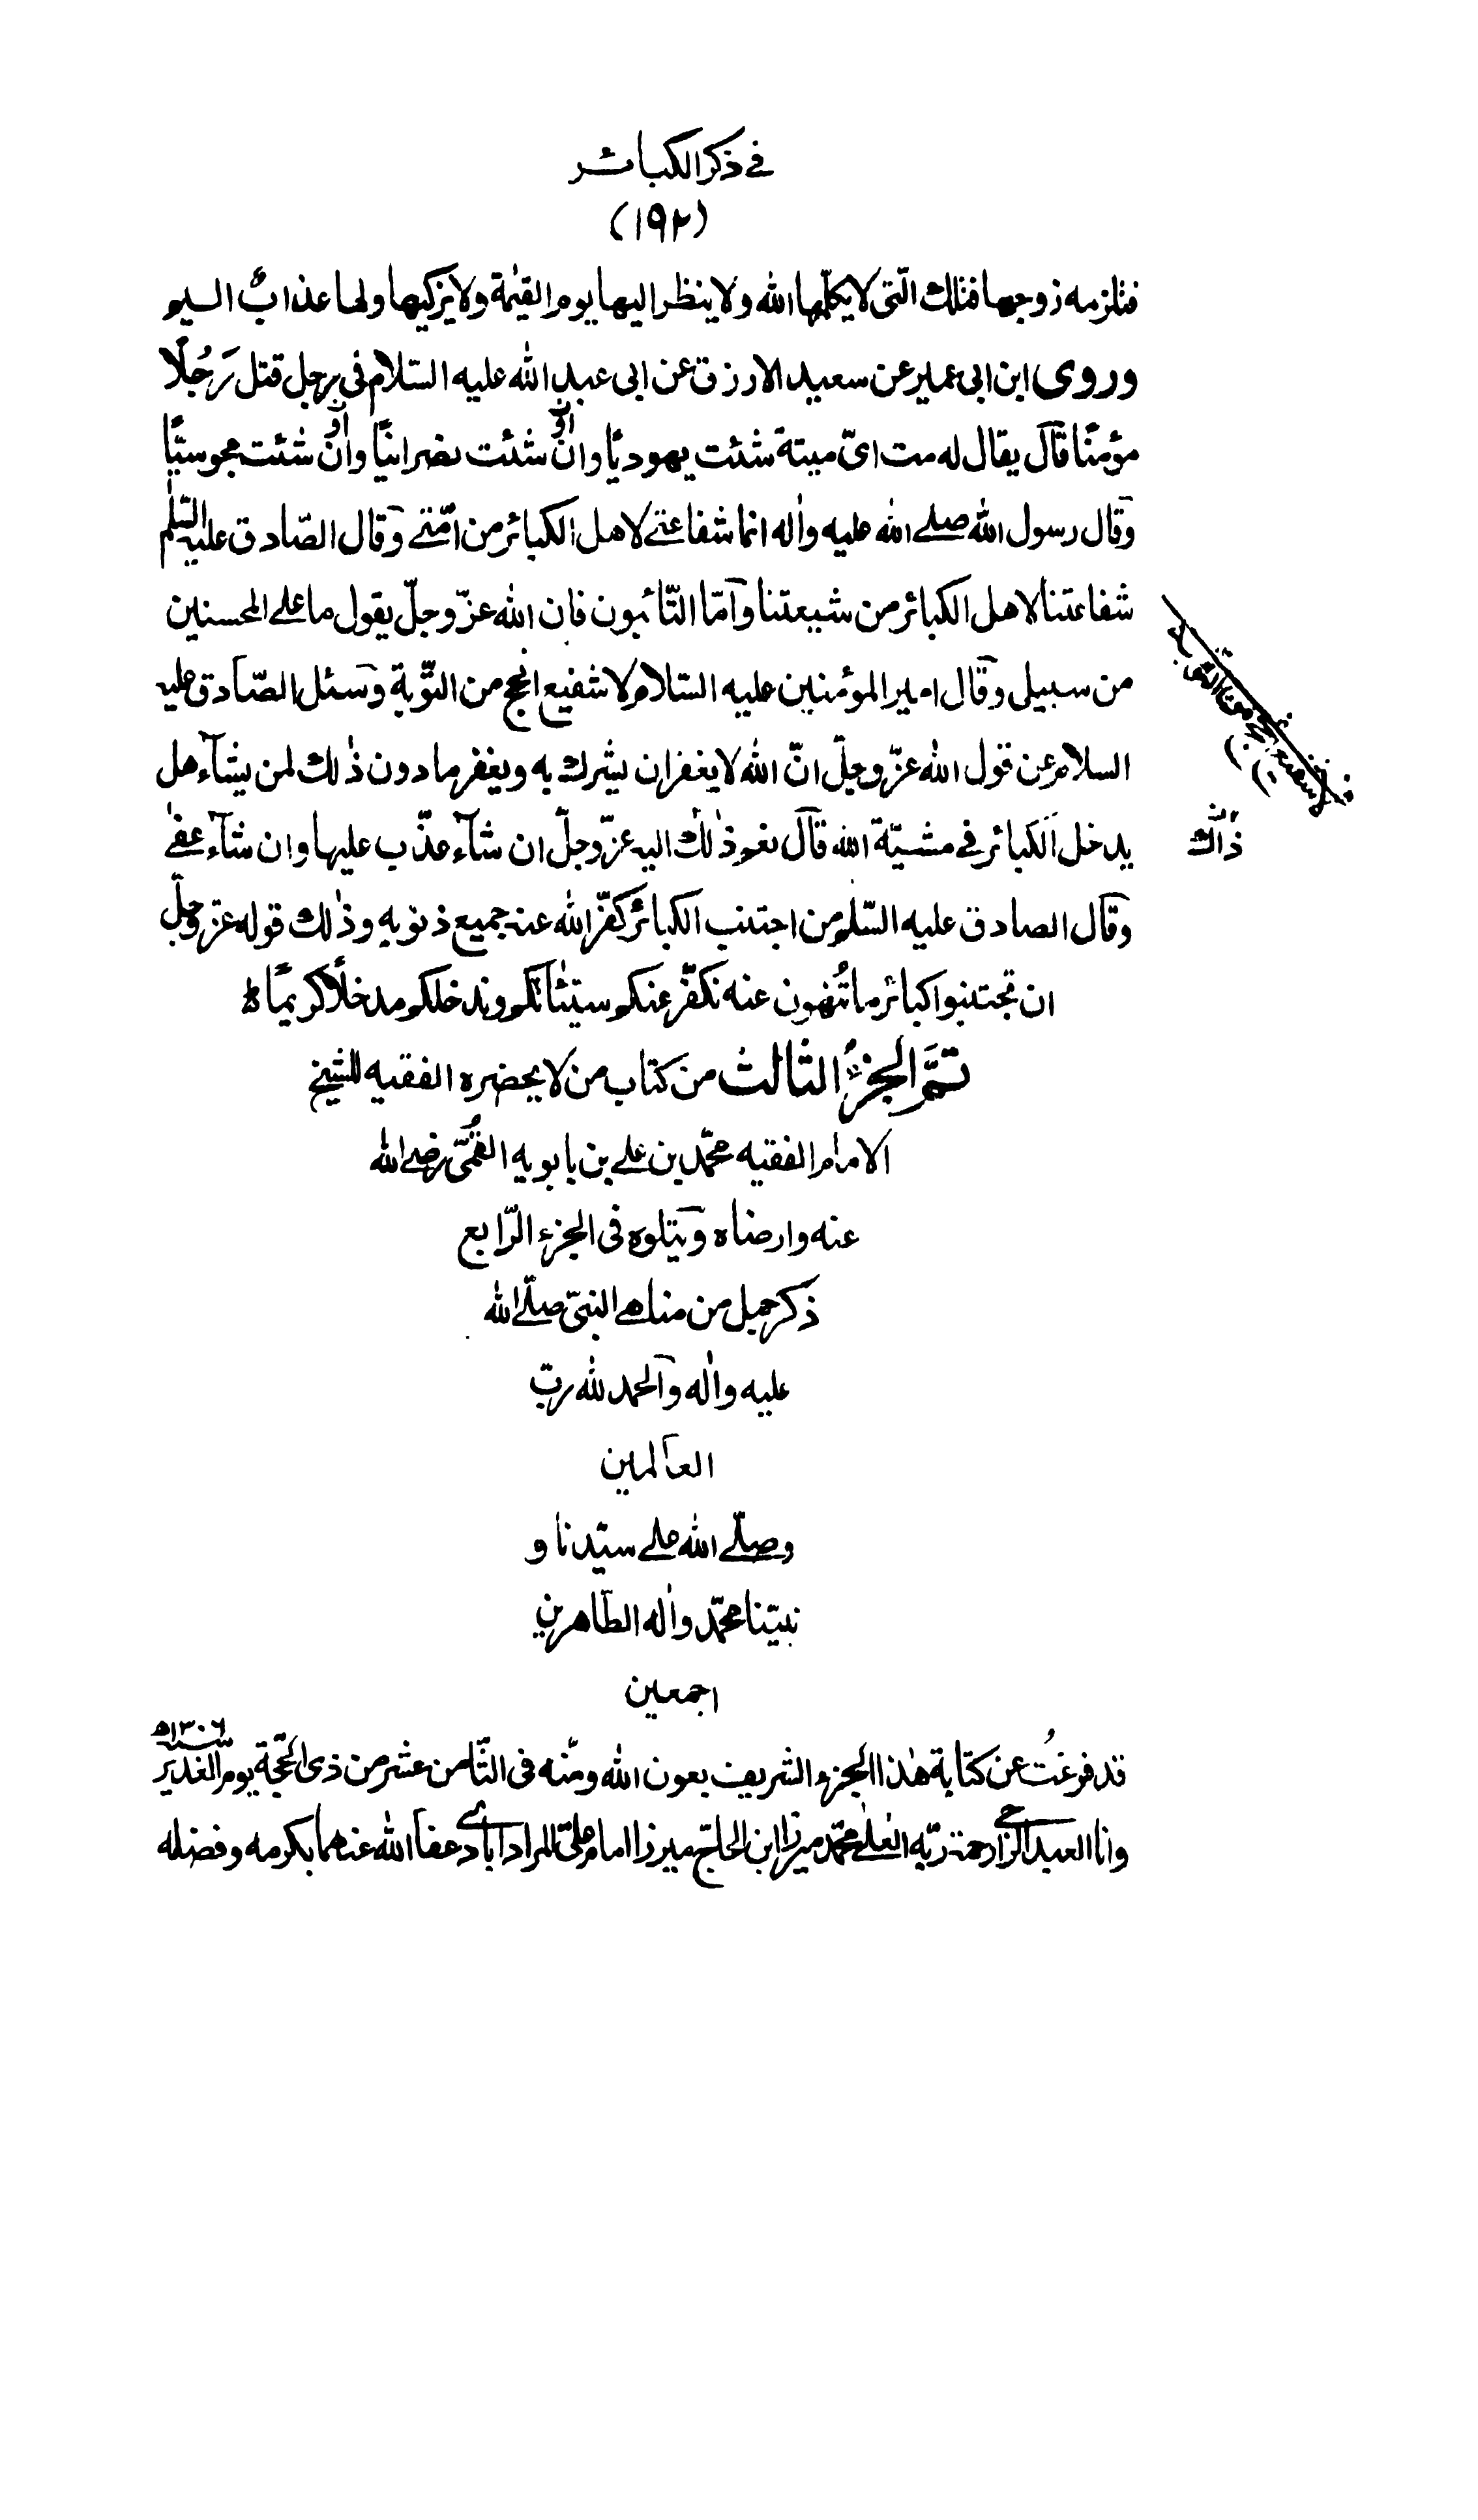 في ذكر الكبائر
(١٩٢)
فتلزمه زوجها فتلك الّتى لا يكلّمها الله ولا ينظر اليها يوم القيٰمة ولا يزكيها ولها عذابٌ اليم
وروى ابن ابى عمير عن سعيد الازرق عن ابى عبد الله عليه السّلام فى رجل قتل رَجُلًا
مؤمنًا قال يقال له مت اىّ ميتة شئت يهوديًا وان شئت نصرانيًا وان شئت مجوسيًّا
وقال رسول الله صلے الله عليه واٰله انما شفاعتے لاهل الكبائر من امّتے وقال الصّادق عليه السّلٰم
شفاعتنا لاهل الكبائر من شيعتنا وامّا التّائبون فان الله عزّ وجلّ يقول ما علے المحسنين
من سبيل وقال امير المؤمنين عليه السلام لا شفيع انجح من التّوبة وسئل الصّادق عليه
السلام عن قول الله عزّ وجلّ انّ الله لا يغفر ان يشرك به ويغفر ما دون ذٰلك لمن يشآء هل
يدخل الكبائر في مشيّة الله قال نعم ذٰلك اليه عزّ وجلّ ان شآء عذّب عليها وان شآء عفٰے
ذاك
وقال الصادق عليه السّلٰم من اجتنب الكبائر كفّر الله عنه جميع ذنوبه وذٰلك قوله عز وجلّ
ان تجتنبوا كبائر ما تُنهون عنه نكفّر عنكم سيّئاتكم وندخلكم مدخلًا كريمًا ط
تمَّ الجزءُ الثالث من كتاب من لا يحضره الفقيه للشيخ
الامام الفقيه محمّد بن علے بن بابويه القُمّى رضے الله
عنه وارضاه ويتلوه فى الجزء الرّابع
ذكر جمل من مناهے النبىّ صلّے الله
عليه واٰله والحمد لله ربّ
العالمين
وصلّے الله علے سيّدنا و
نبيّنا محمّد واٰله الطّاهرين
اجمعين
قد فرغتُ عن كتابة هٰذا الجزء الشريف بعون الله ومنّه فى الثّامن عشر من ذى الحجّة يوم الغدير سنه ١٣٠٦ه
وانا العبد الراجے رحمة ربّه العلے محمّد ميرزا ابن الحاج ميرزا امام علىّ المرادابادے عفا الله عنهما بكرمه وفضله